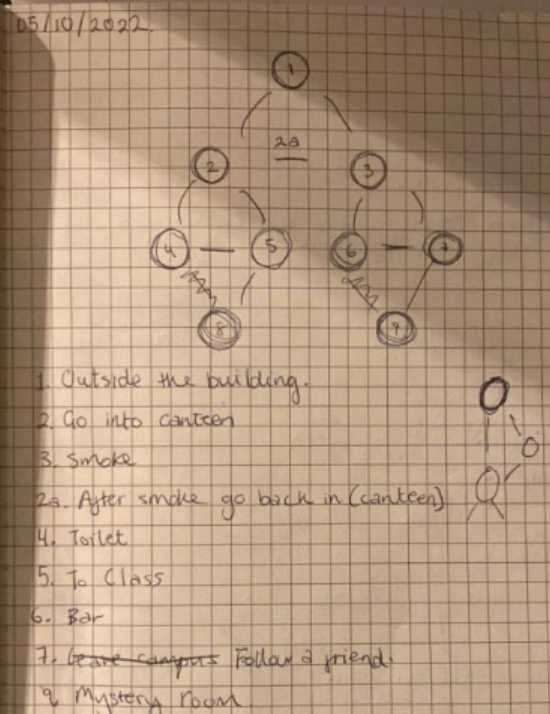 05/10/2022.
1
2a
2
3
4
5
6
7
8
9
1. Outside the building.
2. Go into canteen
3. Smoke
2a. After smoke go back in (canteen)
4. Toilet
5. To Class
6. Bar
7. Leave campus Follow a friend.
9 Mystery room